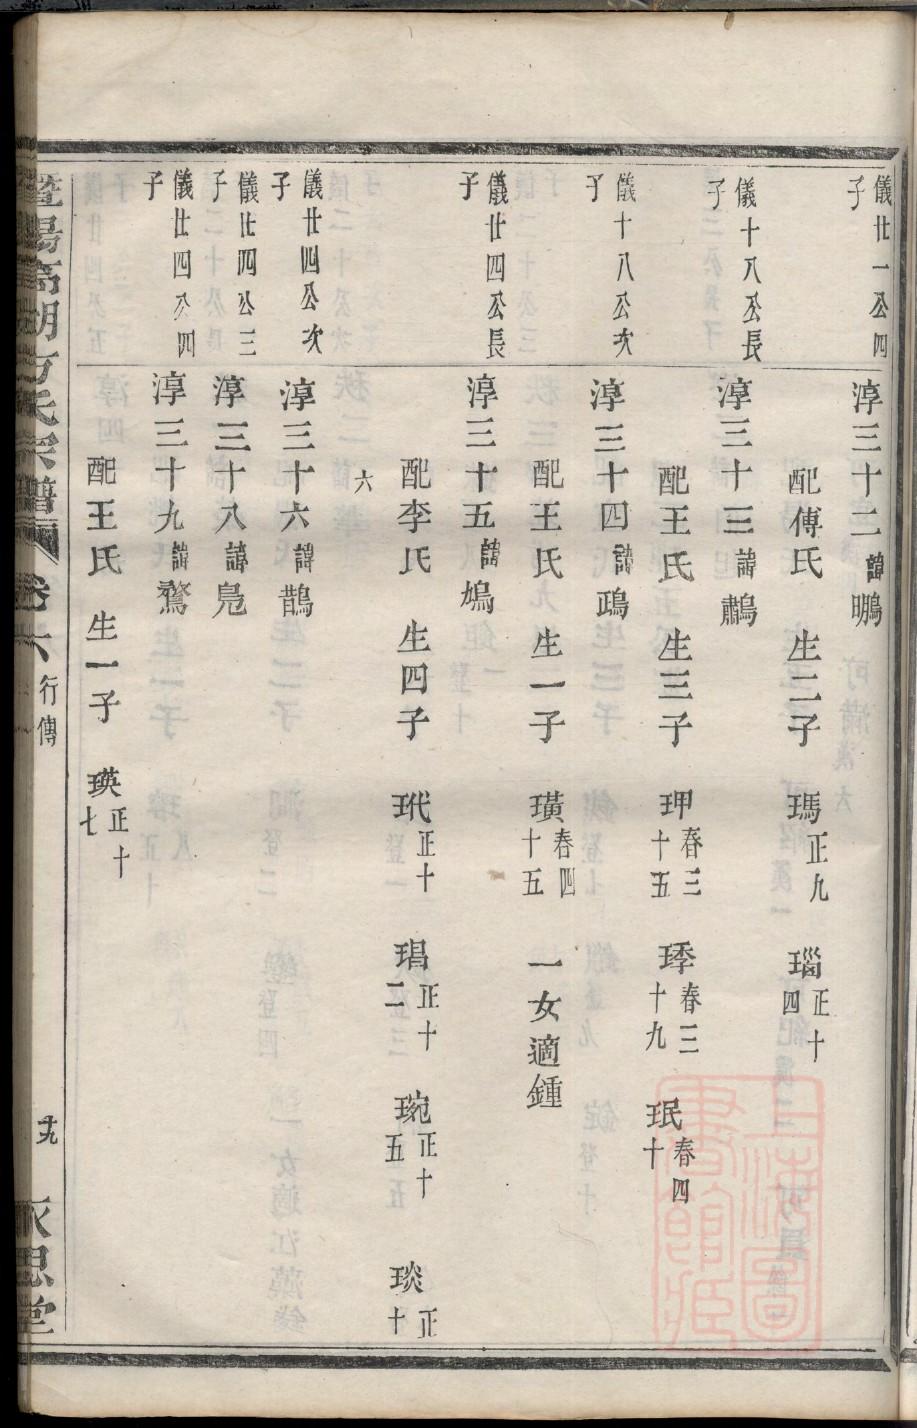 儀廿一公四
子
淳三十二諱鵬
配傅氏 生二子 瑪正九 瑙正十四
儀十八公長
子
淳三十三諱鷫
配王氏 生三子 玾春三十五 㻎春三十九 珉春四十
儀十八公次
子
淳三十四諱鴊
配王氏 生一子 璜春四十五 一女適鍾
儀廿四公長
子
淳三十五諱鳩
配李氏 生四子 玳正十 琩正十二 琬正十五 琰正十
六
儀廿四公次
子
淳三十六諱鵲
儀廿四公三
子
淳三十八諱鳧
儀廿四公四
子
淳三十九諱鶩
配王氏 生一子 瑛正十七
暨陽高湖方氏宗譜
卷六
行傳
廿九
永思堂
上海圖書館藏